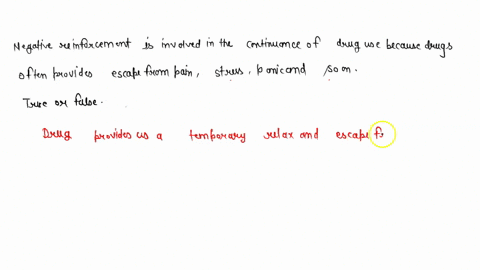 Negative reinforcement is involved in the continuance of drug use because drugs
often provides escape from pain, stress, panic and so on.
True or false.
Drug provides us a temporary relax and escape f